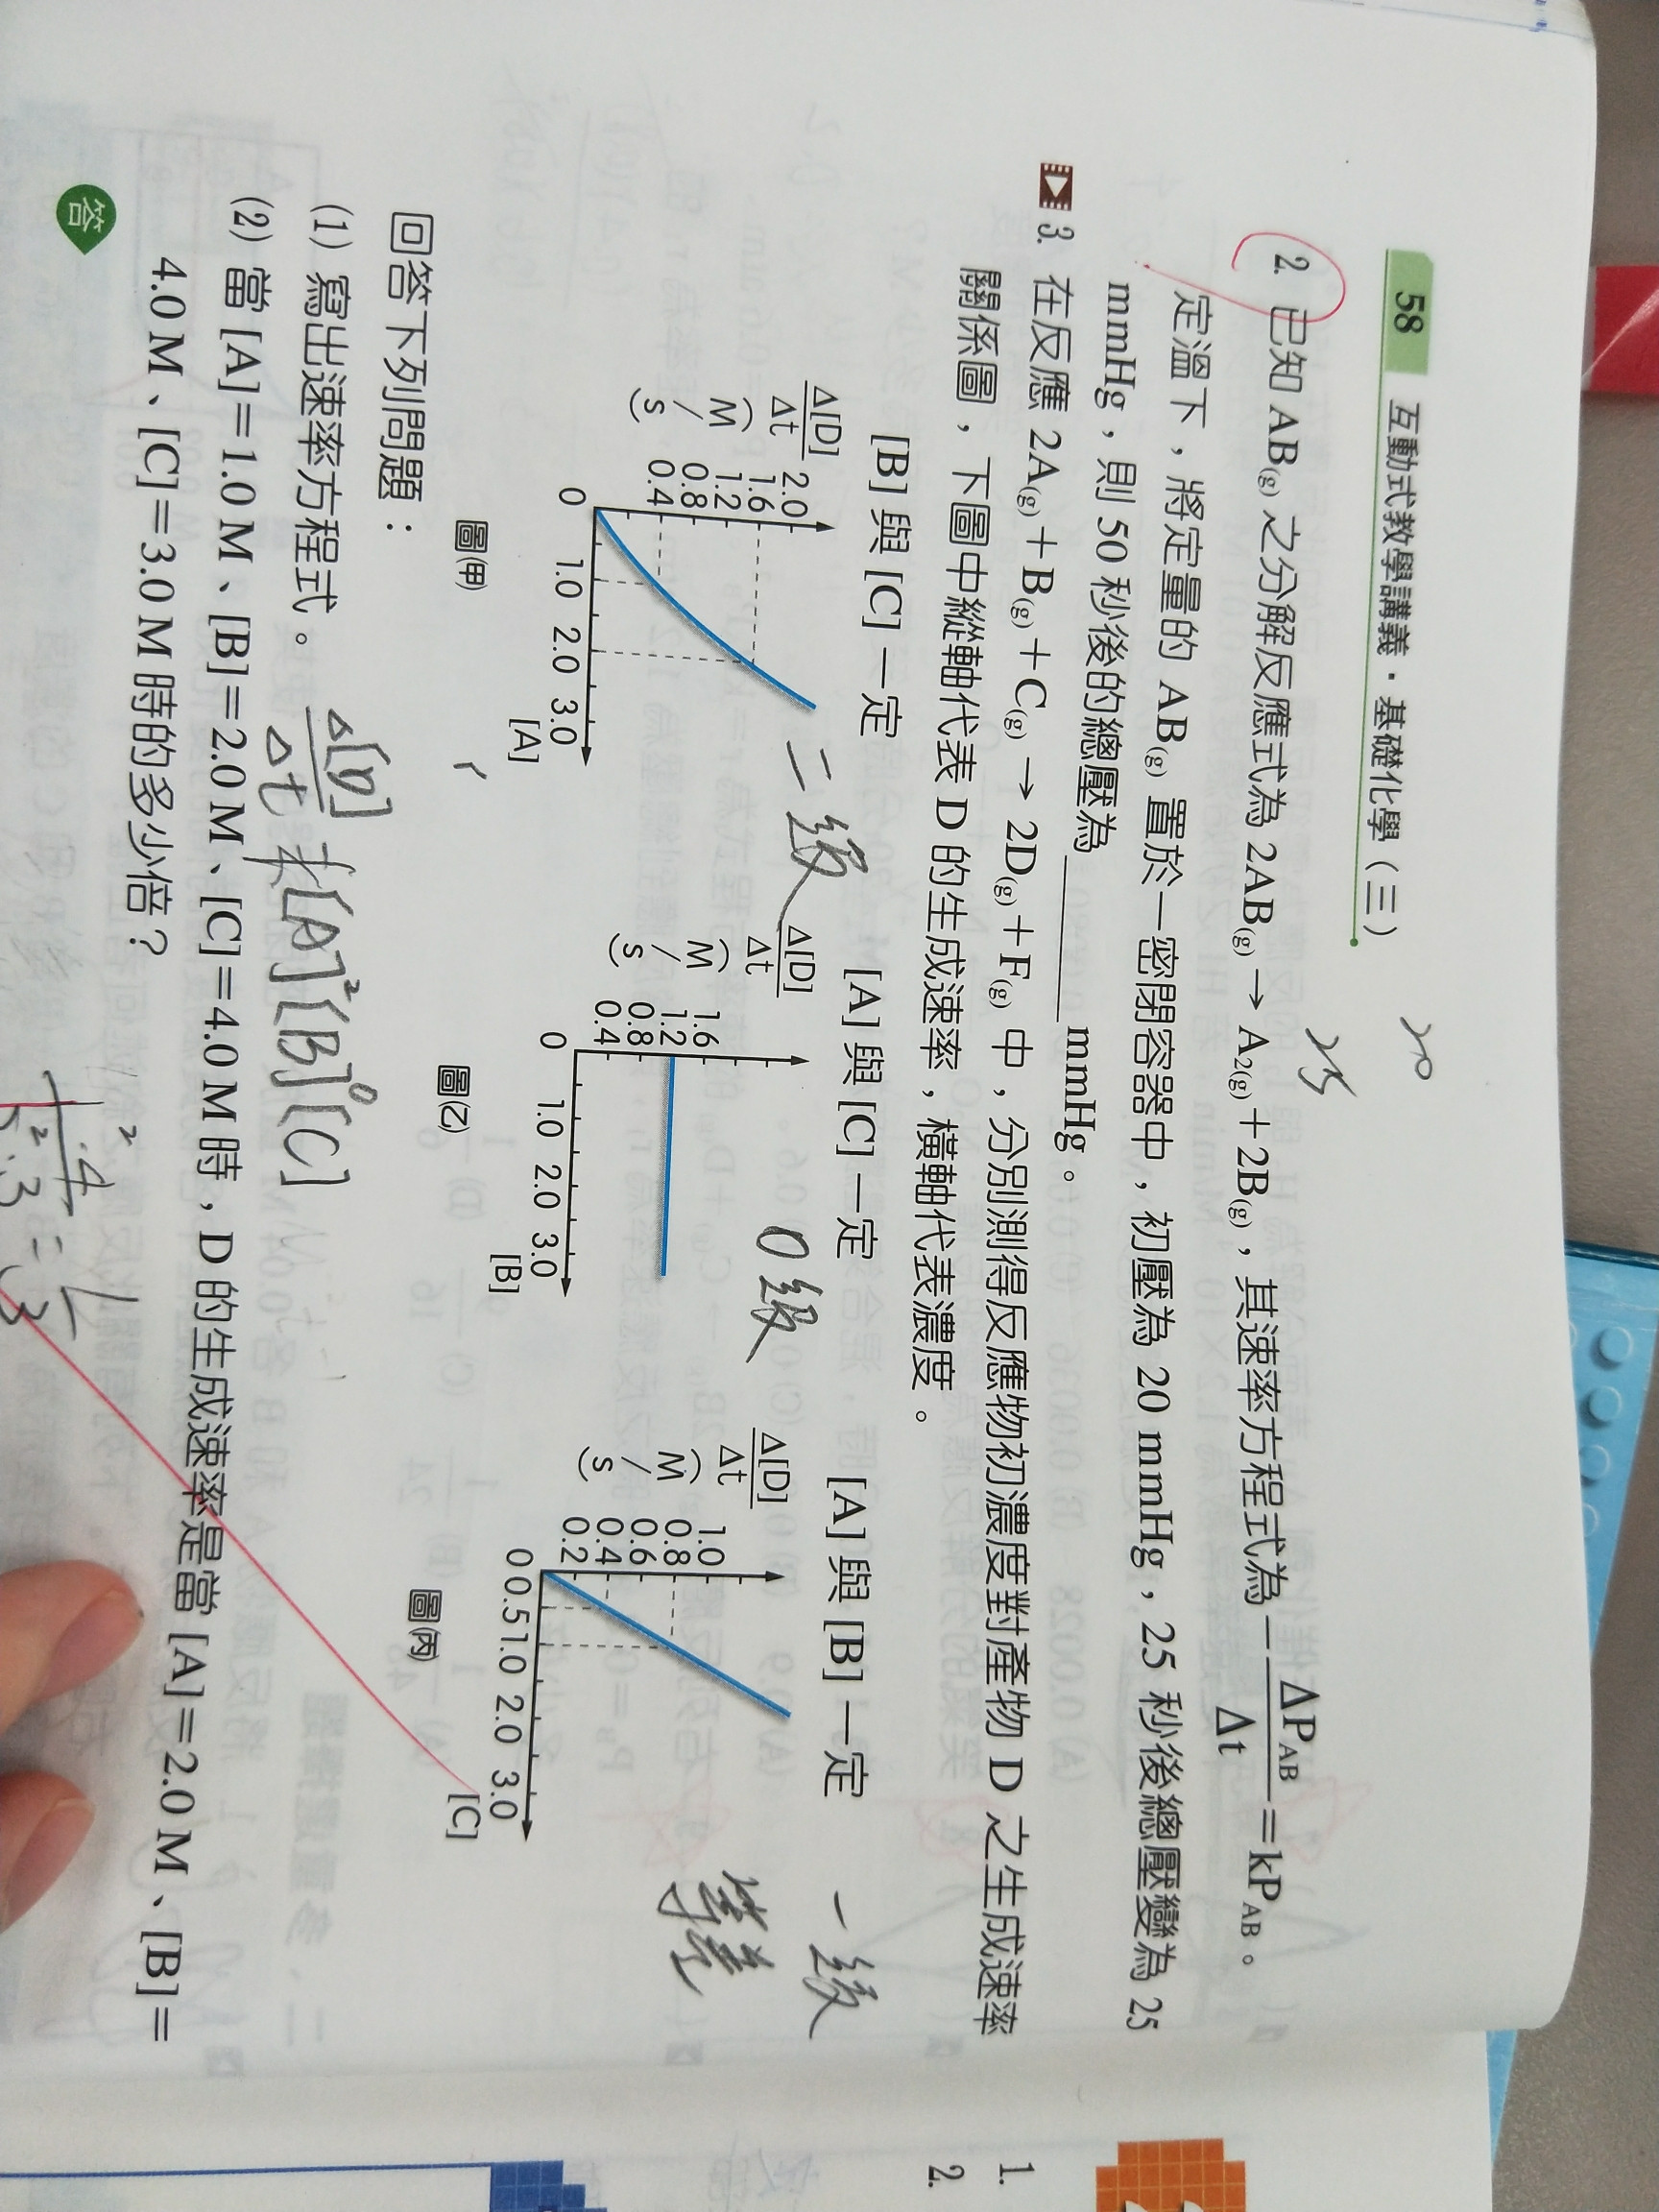 58 互動式教學講義·基礎化學(三)
20
25
2. 已知 AB(g) 之分解反應式為 2AB(g) → A2(g)+2B(g),其速率方程式為 −ΔPAB/Δt=kPAB。
定溫下,將定量的 AB(g) 置於一密閉容器中,初壓為 20 mmHg,25 秒後總壓變為 25
mmHg,則 50 秒後的總壓為________mmHg。
3. 在反應 2A(g)+B(g)+C(g) → 2D(g)+F(g) 中,分別測得反應物初濃度對產物 D 之生成速率
關係圖,下圖中縱軸代表 D 的生成速率,橫軸代表濃度。
[B] 與 [C] 一定
Δ[D]/Δt (M/s)
2.0
1.6
1.2
0.8
0.4
0 1.0 2.0 3.0
[A]
圖(甲)
二級
[A] 與 [C] 一定
Δ[D]/Δt (M/s)
1.6
1.2
0.8
0.4
0 1.0 2.0 3.0
[B]
圖(乙)
0級
[A] 與 [B] 一定
Δ[D]/Δt (M/s)
1.0
0.8
0.6
0.4
0.2
0 0.5 1.0 2.0 3.0
[C]
圖(丙)
一級
等差
回答下列問題:
(1) 寫出速率方程式。
Δ[D]/Δt = k[A]²[B]⁰[C]
(2) 當 [A]=1.0 M、[B]=2.0 M、[C]=4.0 M 時,D 的生成速率是當 [A]=2.0 M、[B]=
4.0 M、[C]=3.0 M 時的多少倍?
答
1.
2.